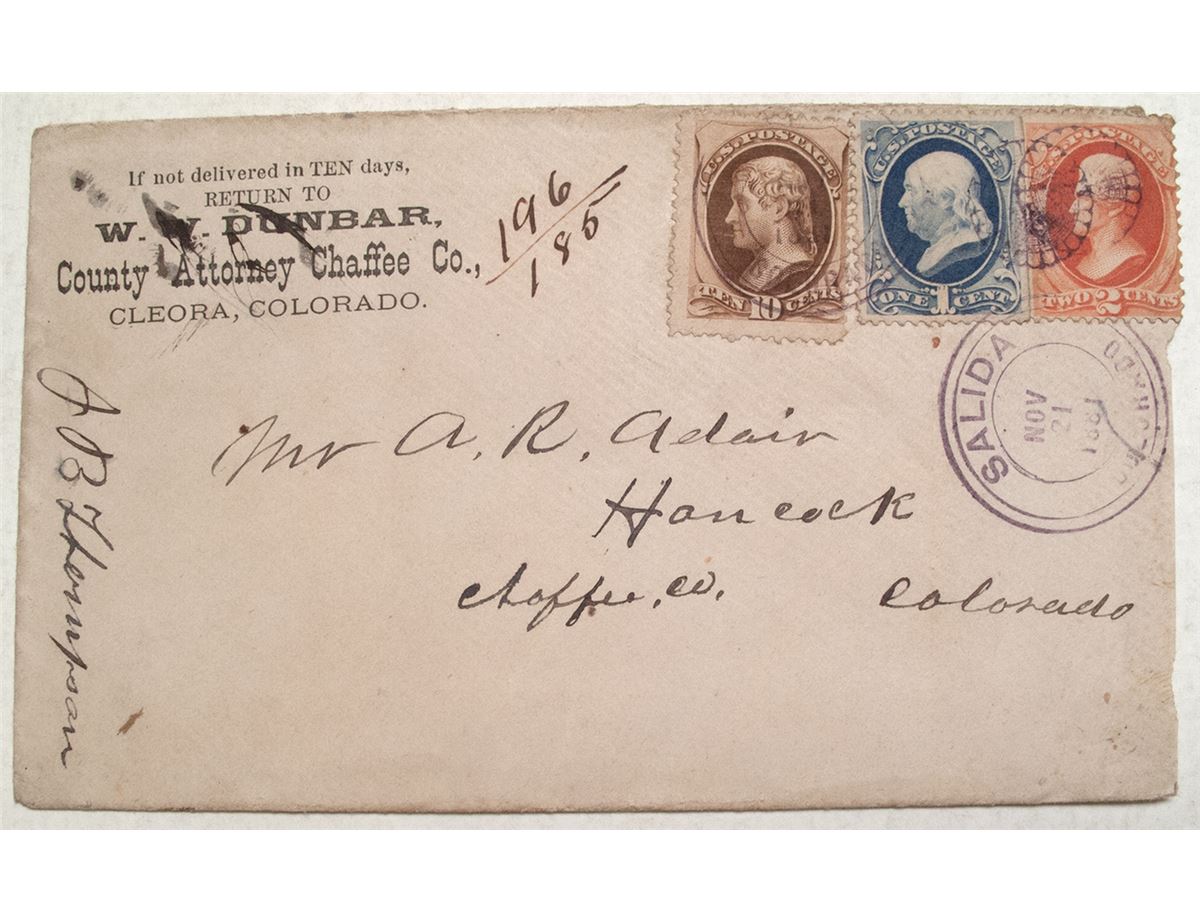 If not delivered in TEN days,
RETURN TO
W. W. DUNBAR,
County Attorney Chaffee Co.,
CLEORA, COLORADO.
196/185
U.S. POSTAGE
TEN 10 CENTS
U.S. POSTAGE
ONE 1 CENT
U.S. POSTAGE
TWO 2 CENTS
SALIDA
NOV
21
1881
COLORADO
Mr A. R. Adair
Hancock
Chaffee. Co. Colorado
J B Thompson